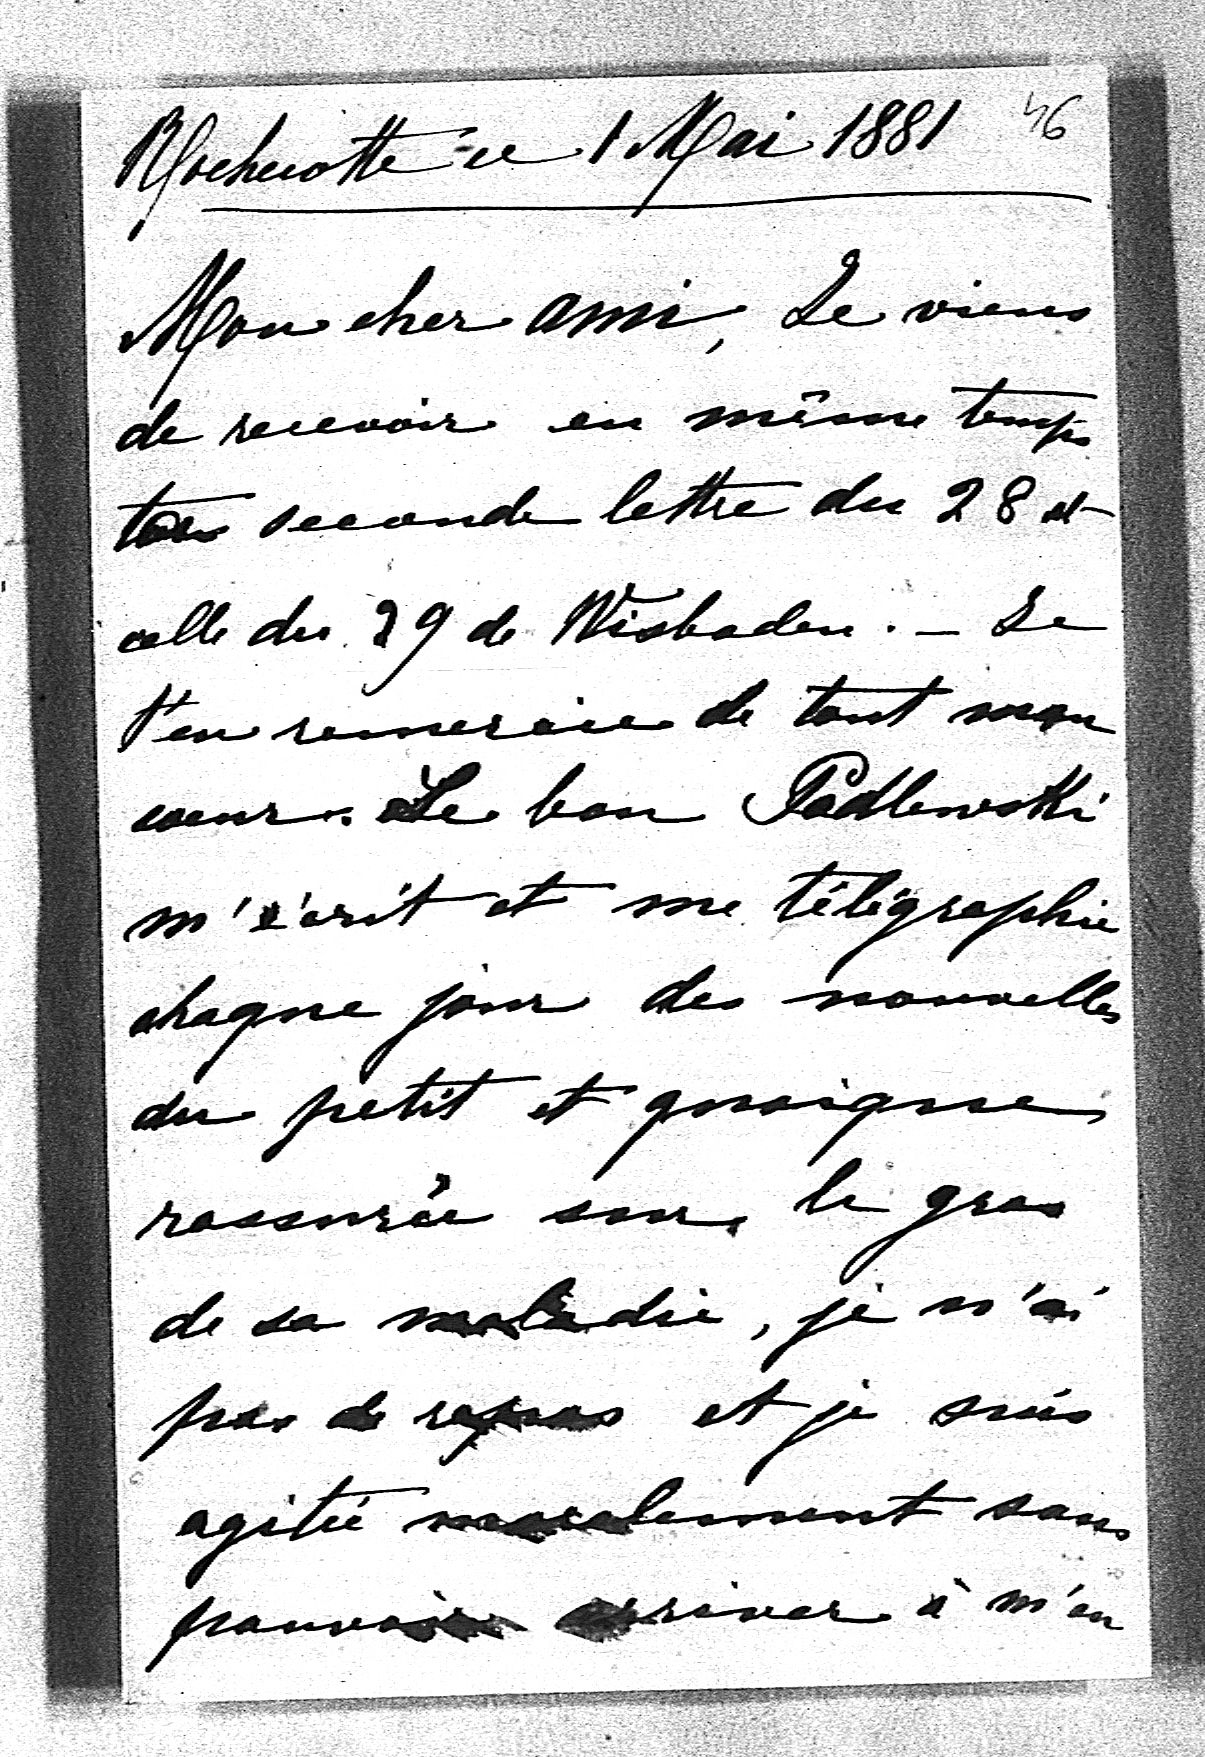 Rochecotte ce 1 Mai 1881 46
Mon cher ami, Je viens
de recevoir en même temps
ta seconde lettre du 28 et
celle du 29 de Wisbaden. — Je
t'en remercie de tout mon
coeur. Le bon Padlewski
m'écrit et me télégraphie
chaque jour des nouvelles
du petit et quoique
rassurée sur le gros
de sa maladie, je n'ai
pas de repos et je suis
agitée moralement sans
pouvoir arriver à m'en